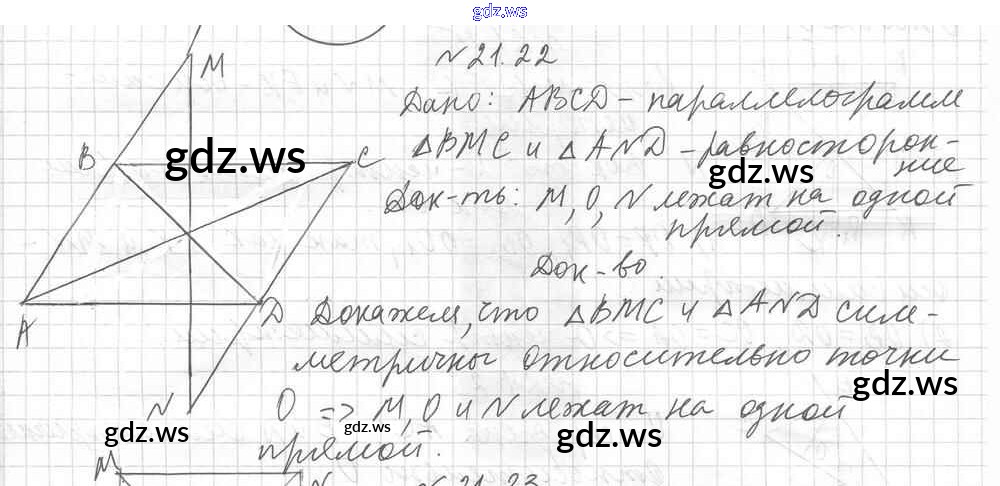 gdz.ws
№ 21.22
M
Дано: ABCD – параллелограмм
B
gdz.ws
C
△BMC и △AND – равносторон-
ние
gdz.ws
Док-ть: M, O, N лежат на одной
прямой.
Док-во.
A
D
Докажем, что △BMC и △AND сим-
метричны относительно точки
gdz.ws
N
O => M, O и N лежат на одной
gdz.ws
gdz.ws
gdz.ws
прямой.
M
N
№ 21.23